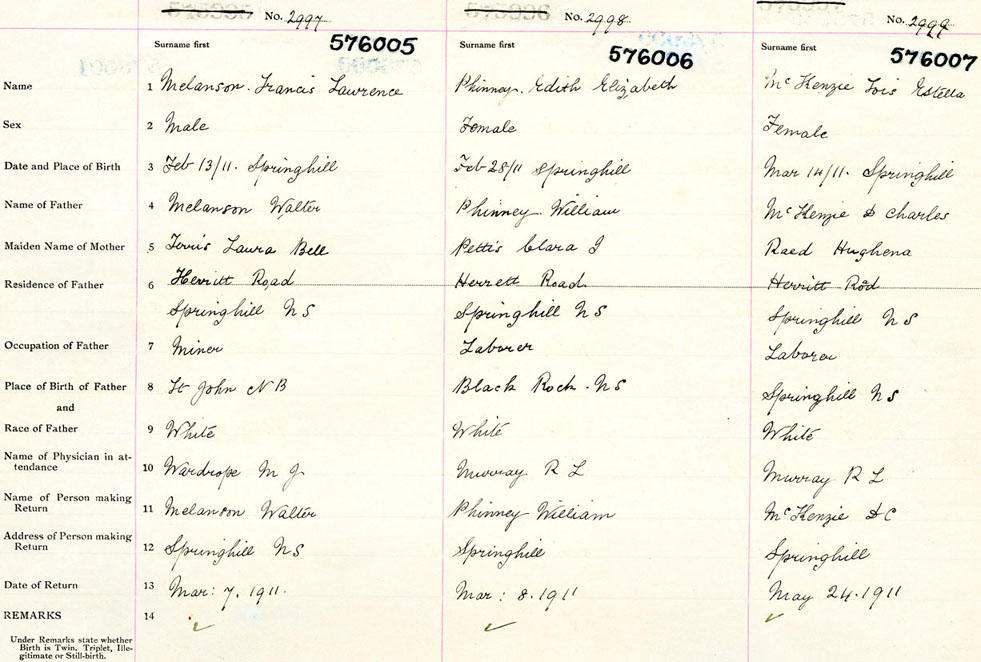 No. 2997 No. 2998 No. 2999
Surname first 576005 Surname first 576006 Surname first 576007
Name 1 Melanson. Francis Lawrence Phinney. Edith Elizabeth Mc Kenzie Lois Estella
Sex 2 Male Female Female
Date and Place of Birth 3 Feb 13/11. Springhill Feb 28/11 Springhill Mar 14/11. Springhill
Name of Father 4 Melanson Walter Phinney William Mc Kenzie D Charles
Maiden Name of Mother 5 Laura Bell Pettis Clara J Raed Hughena
Residence of Father 6 Herritt Road Herrett Road Herritt Rod
Springhill N S Springhill N S Springhill N S
Occupation of Father 7 Miner Laborer Laborer
Place of Birth of Father 8 St John N B Black Rock. N S Springhill N S
and
Race of Father 9 White White White
Name of Physician in at-
tendance 10 Wardrope M J Murray R L Murray R L
Name of Person making
Return 11 Melanson Walter Phinney William Mc Kenzie D C
Address of Person making
Return 12 Springhill N S Springhill Springhill
Date of Return 13 Mar: 7. 1911. Mar: 8. 1911 May 24. 1911
REMARKS 14
Under Remarks state whether
Birth is Twin. Triplet, Ille-
gitimate or Still-birth.